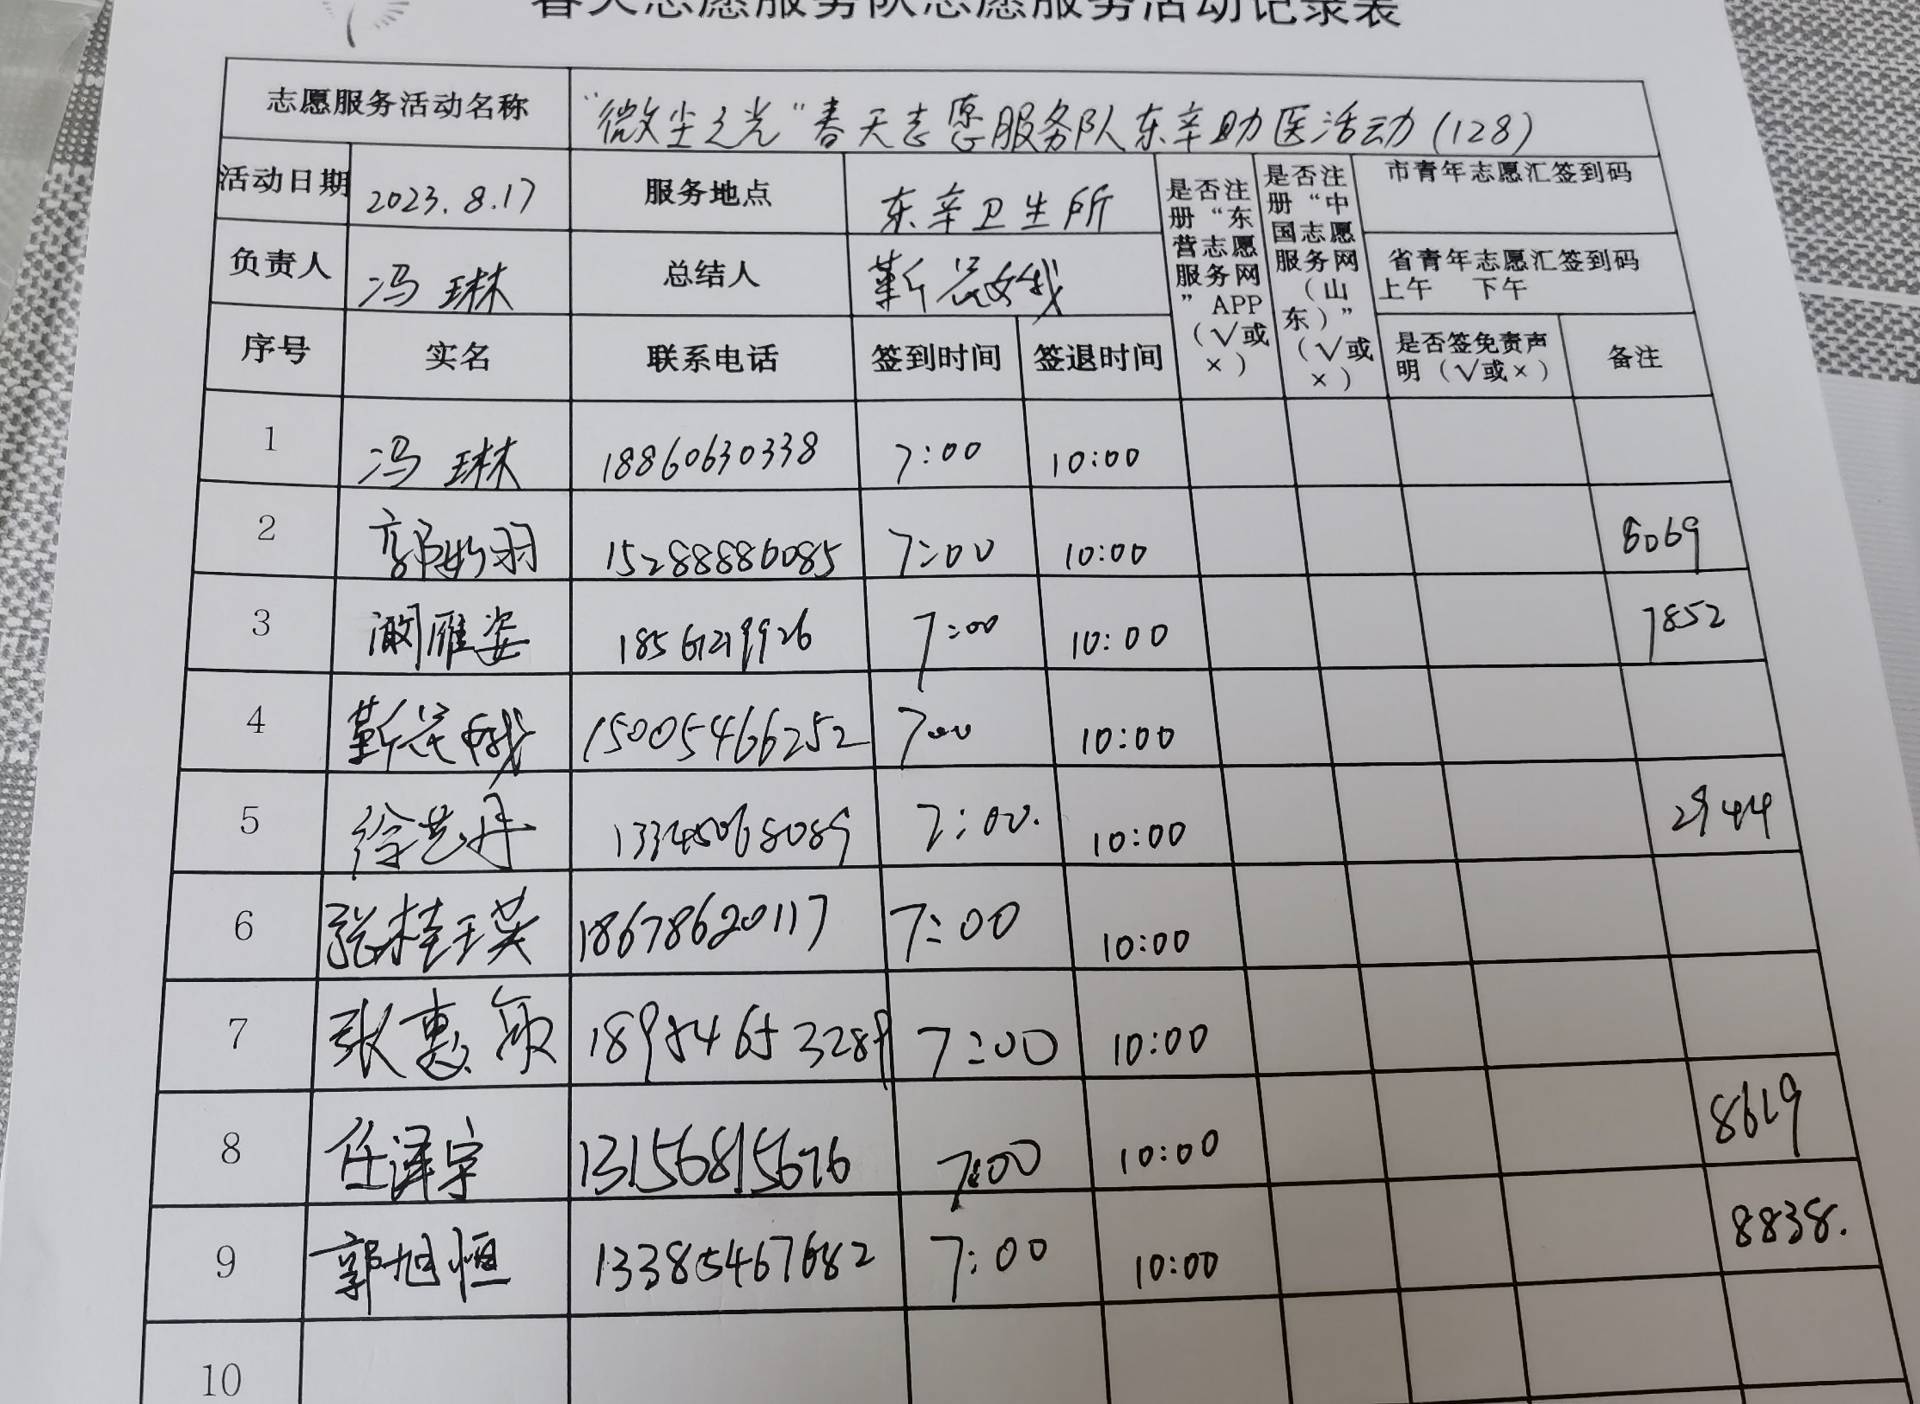 春天志愿服务队志愿服务活动记录表
志愿服务活动名称 “微尘之光”春天志愿服务队东辛助医活动(128)
活动日期 2023.8.17 服务地点 东辛卫生所 是否注册“东营志愿服务网”APP（√或×） 是否注册“中国志愿服务网（山东）”（√或×） 市青年志愿汇签到码
负责人 冯琳 总结人 靳 省青年志愿汇签到码 上午 下午
序号 实名 联系电话 签到时间 签退时间 是否签免责声明（√或×） 备注
1 冯琳 18860630338 7:00 10:00
2 郭 羽 15288886085 7:00 10:00 8069
3 阚雁姿 18561219926 7:00 10:00 7852
4 靳 15005466252 7:00 10:00
5 徐艺丹 13345068089 7:00. 10:00 2944
6 张桂英 18678620117 7:00 10:00
7 张惠敏 18954653289 7:00 10:00
8 任泽宇 13156815676 7:00 10:00 8619
9 郭旭恒 13385467682 7:00 10:00 8838.
10